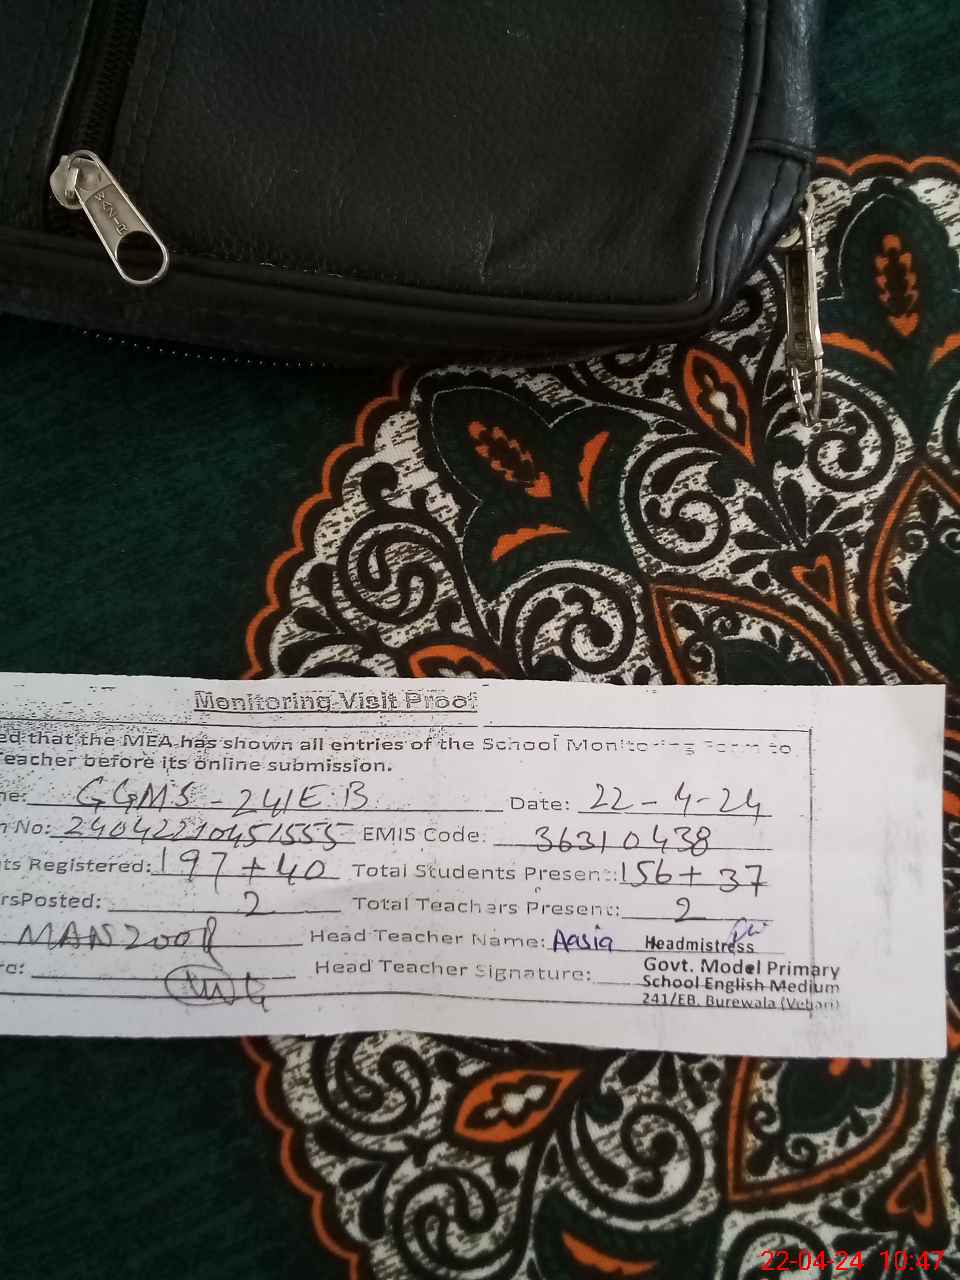 Monitoring Visit Proof
ed that the MEA has shown all entries of the School Monitoring Form to
Teacher before its online submission.
ne: GGMS - 241E.B Date: 22-4-24
n No: EMIS Code: 36310438
ts Registered: 197+40 Total Students Present: 156+37
rsPosted: 2 Total Teachers Present: 2
MANZOOR Head Teacher Name: Aasia Headmistress
Head Teacher Signature: Govt. Model Primary
School English Medium
241/EB. Burewala (Vehari)
22-04-24 10:47